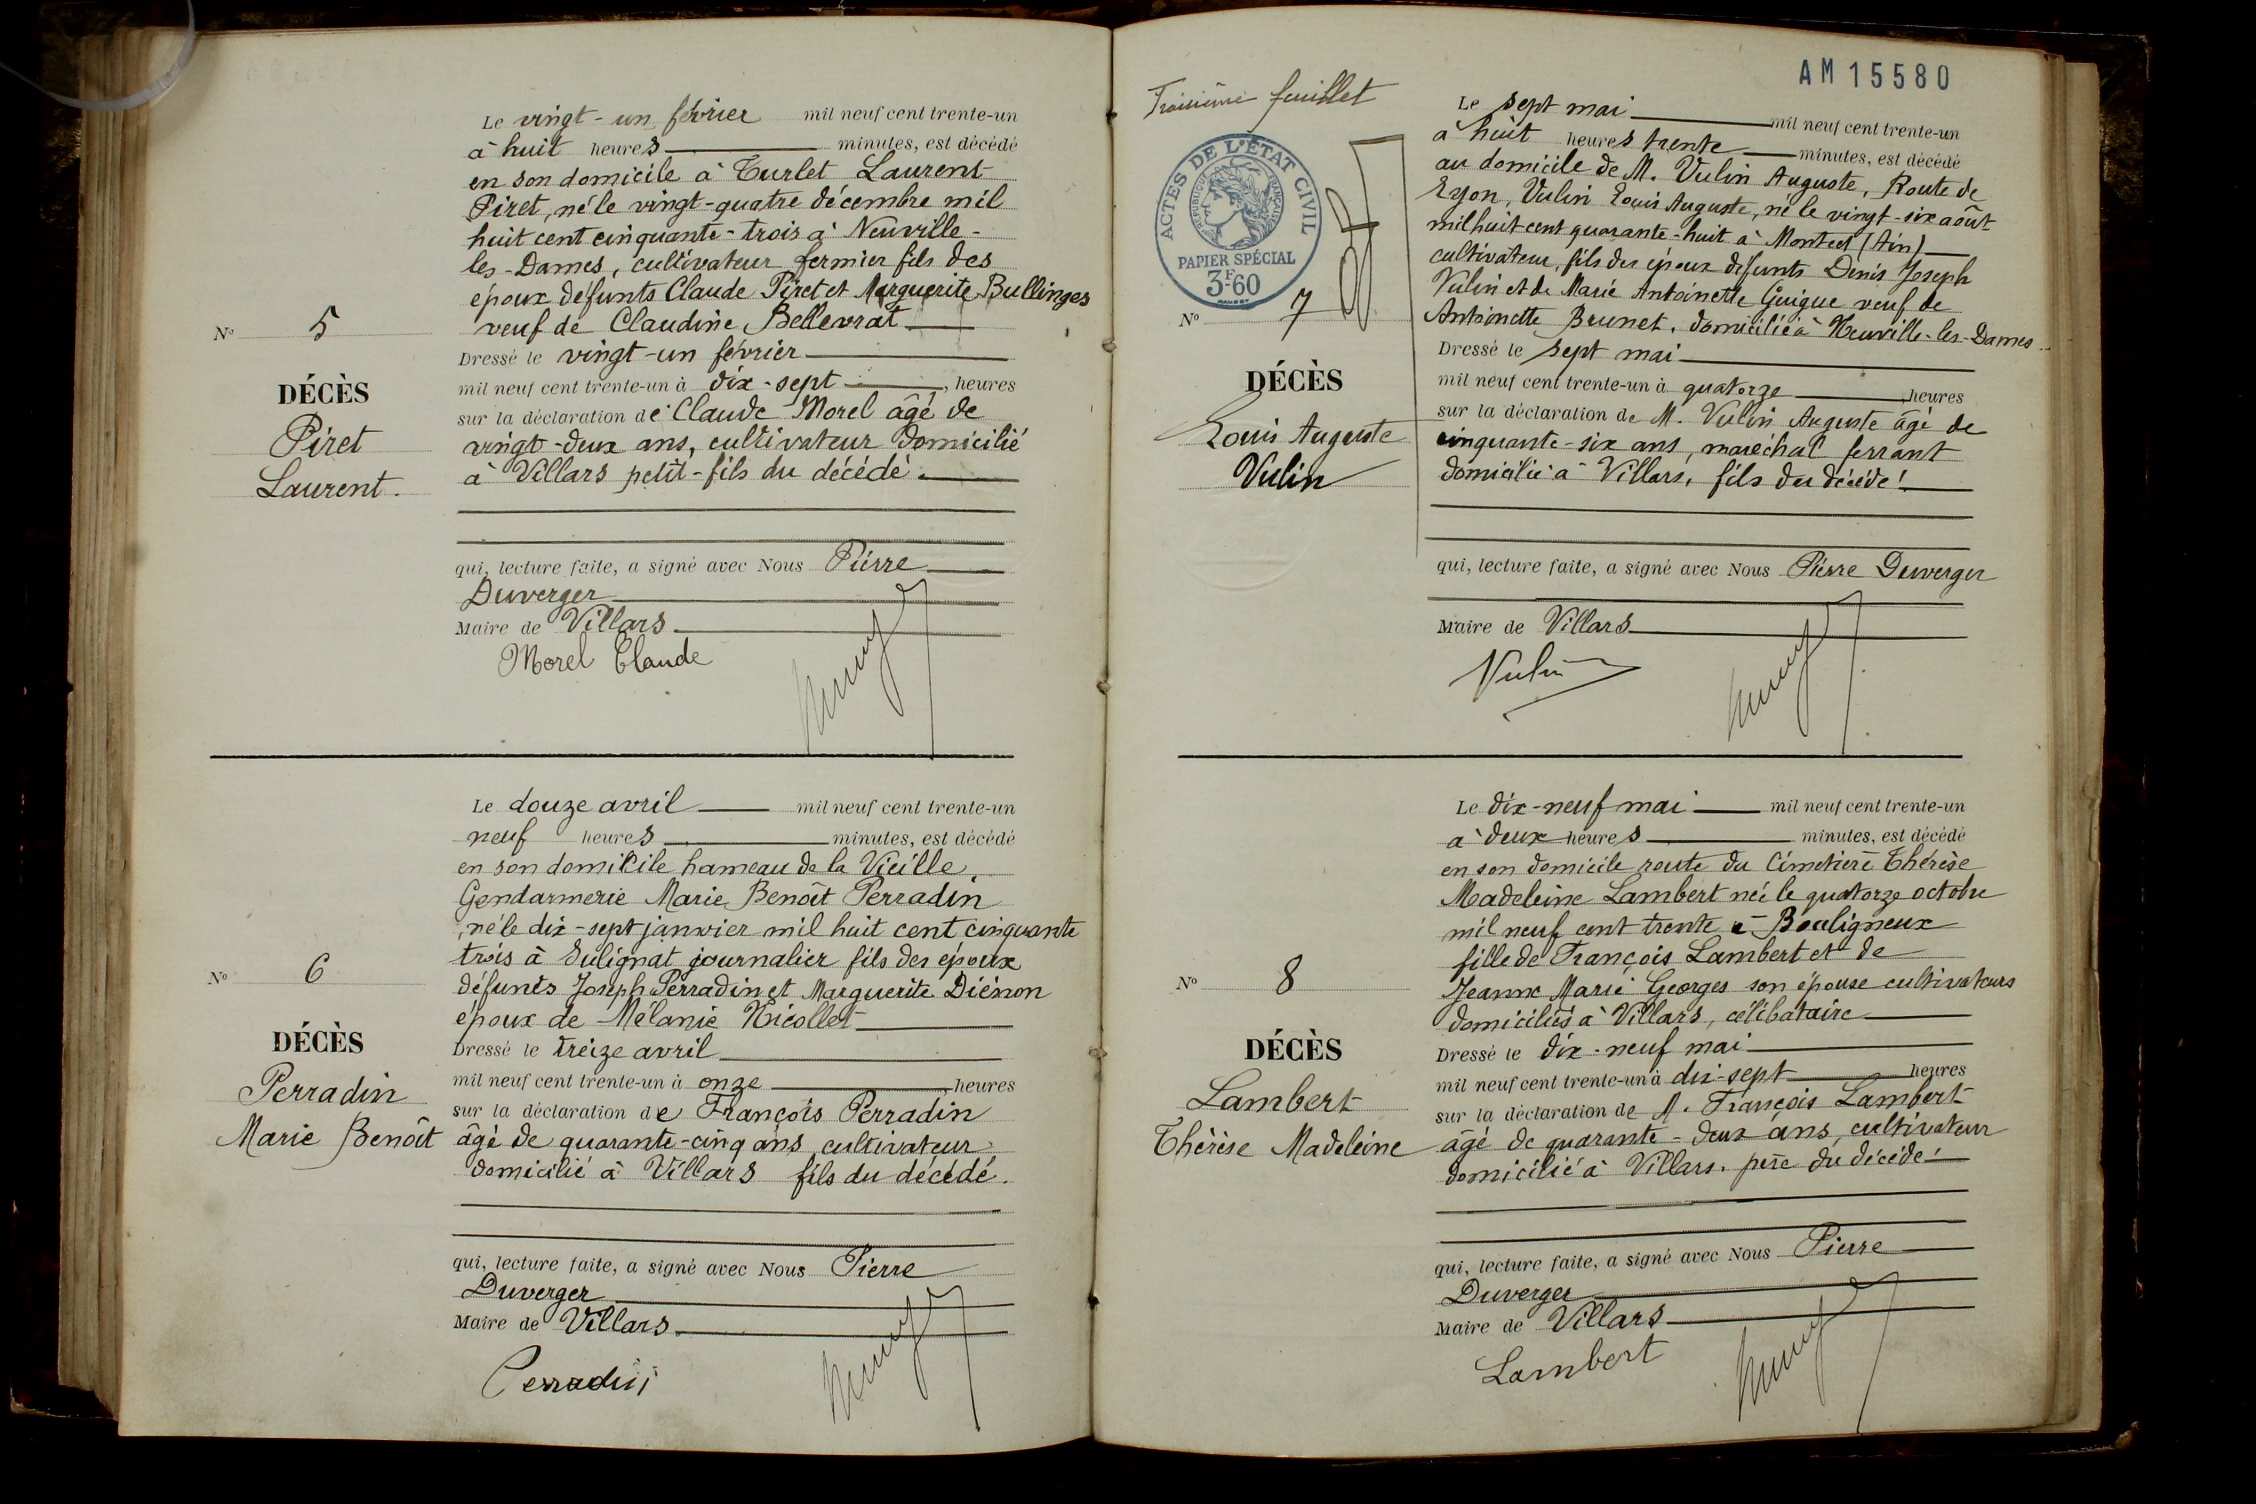 Le vingt-un février mil neuf cent trente-un
à huit heures minutes, est décédé
en son domicile à Turlet Laurent
Piret, né le vingt-quatre décembre mil
huit cent cinquante-trois à Neuville-
les-Dames, cultivateur fermier fils des
époux défunts Claude Piret et Marguerite Bullinges
veuf de Claudine Bellevrat
Dressé le vingt-un février
mil neuf cent trente-un à dix-sept, heures
sur la déclaration de Claude Morel âgé de
vingt-deux ans, cultivateur domicilié
à Villars petit-fils du décédé.
qui, lecture faite, a signé avec Nous Pierre
Duverger
Maire de Villars
Morel Claude
N° 5
DÉCÈS
Piret
Laurent.
Le douze avril mil neuf cent trente-un
neuf heures minutes, est décédé
en son domicile hameau de la Vieille
Gendarmerie Marie Benoît Perradin
né le dix-sept janvier mil huit cent cinquante
trois à Sulignat journalier fils des époux
défunts Joseph Perradin et Marguerite Diénon
époux de Mélanie Nicollet
Dressé le treize avril
mil neuf cent trente-un à onze heures
sur la déclaration de François Perradin
âgé de quarante-cinq ans cultivateur
domicilié à Villars fils du décédé.
qui, lecture faite, a signé avec Nous Pierre
Duverger
Maire de Villars
Perradin
N° 6
DÉCÈS
Perradin
Marie Benoît
AM 15580
Troisième feuillet
ACTES DE L'ÉTAT CIVIL
RÉPUBLIQUE FRANÇAISE
PAPIER SPÉCIAL
3F60
N° 7
DÉCÈS
Louis Auguste
Vulin
Le sept mai mil neuf cent trente-un
à huit heures trente minutes, est décédé
au domicile de M. Vulin Auguste, Route de
Lyon, Vulin Louis Auguste, né le vingt-six août
mil huit cent quarante-huit à Montcet (Ain)
cultivateur, fils des époux défunts Denis Joseph
Vulin et de Marie Antoinette Guigue veuf de
Antoinette Brunet, domicilié à Neuville-les-Dames
Dressé le sept mai
mil neuf cent trente-un à quatorze heures
sur la déclaration de M. Vulin Auguste âgé de
cinquante-six ans, maréchal ferrant
domicilié à Villars, fils du décédé.
qui, lecture faite, a signé avec Nous Pierre Duverger
Maire de Villars
Vulin
Le dix-neuf mai mil neuf cent trente-un
à deux heures minutes, est décédé
en son domicile route du Cimetière Thérèse
Madeleine Lambert née le quatorze octobre
mil neuf cent trente à Bouligneux
fille de François Lambert et de
Jeanne Marie Georges son épouse cultivateurs
domiciliés à Villars, célibataire
Dressé le dix-neuf mai
mil neuf cent trente-un à dix-sept heures
sur la déclaration de M. François Lambert
âgé de quarante-deux ans, cultivateur
domicilié à Villars. père du décédé.
qui, lecture faite, a signé avec Nous Pierre
Duverger
Maire de Villars
Lambert
N° 8
DÉCÈS
Lambert
Thérèse Madeleine